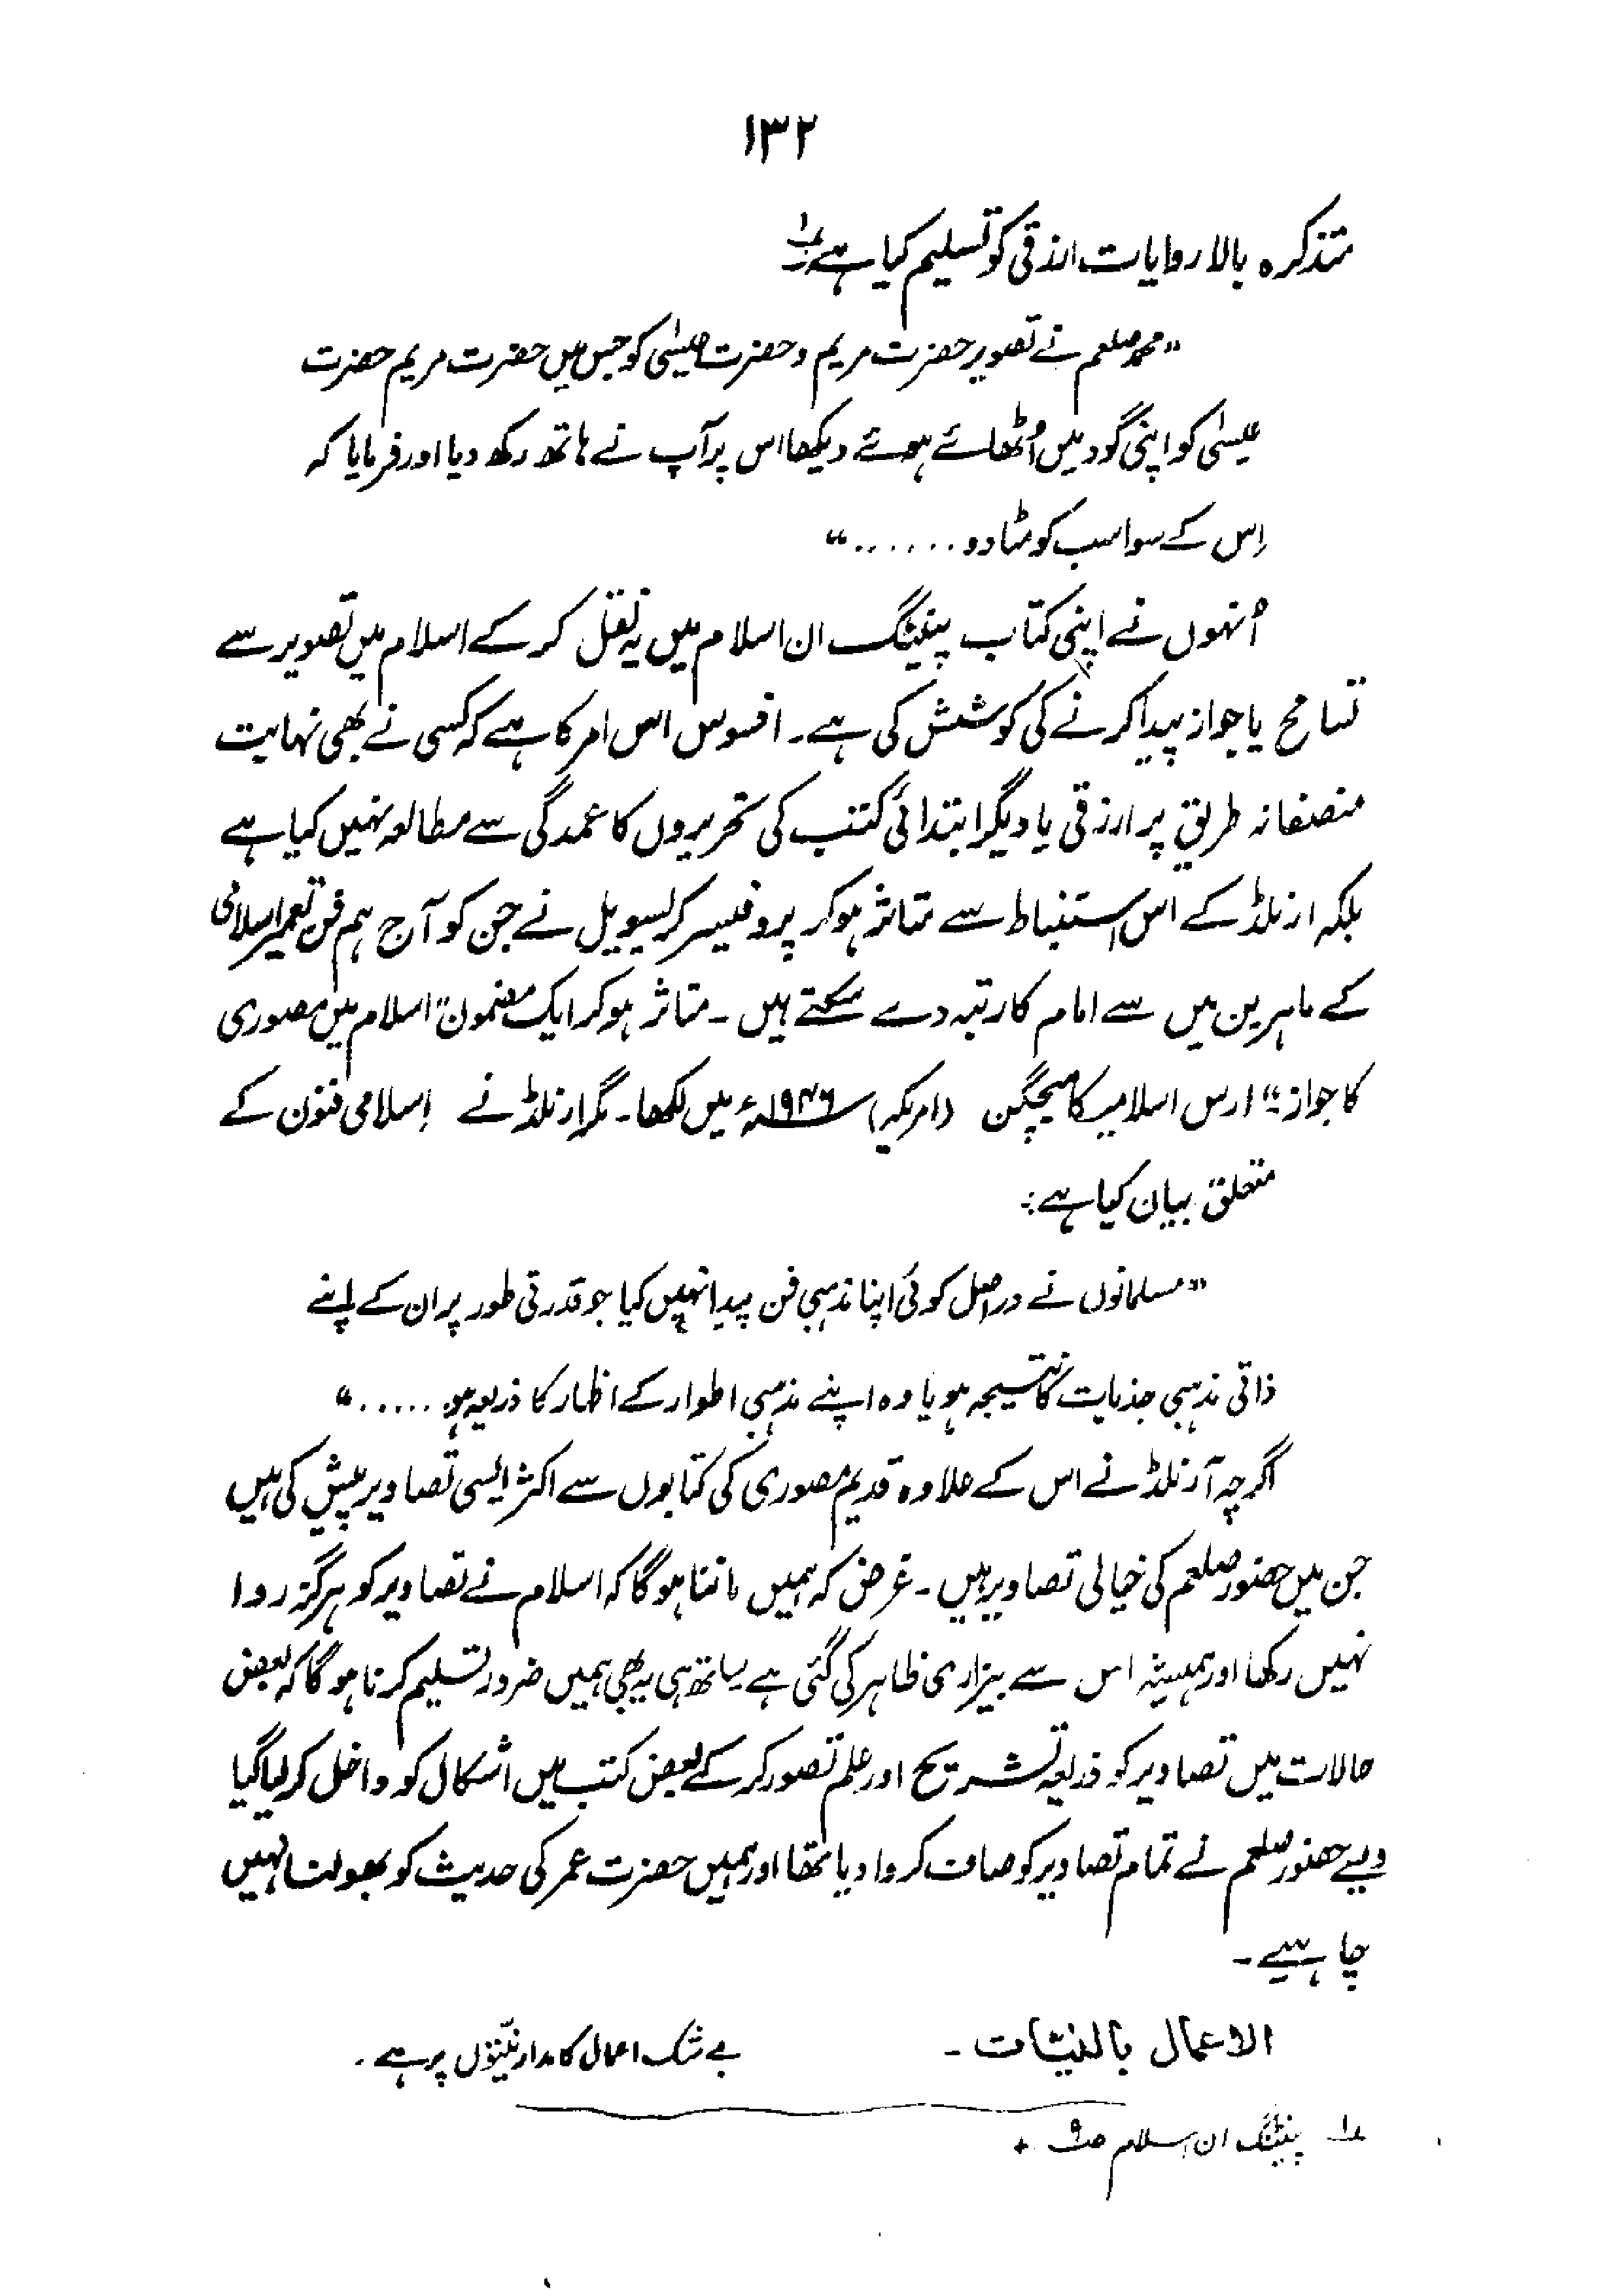 ۱۳۲
متذکرہ بالا روایات ازرقی کو تسلیم کیا ہے ؎۱
"محمد صلعم نے تصویر حضرت مریم و حضرت عیسیٰ کو جس میں حضرت مریم حضرت
عیسیٰ کو اپنی گود میں اُٹھائے ہوئے دیکھا اس پر آپ نے ہاتھ رکھ دیا اور فرمایا کہ
اِس کے سوا سب کو مٹا دو ......."
اُنہوں نے اپنی کتاب پینٹنگ ان اسلام میں یہ نقل کر کے اسلام میں تصویر سے
تسامح یا جواز پیدا کرنے کی کوشش کی ہے۔ افسوس اس امر کا ہے کہ کسی نے بھی نہایت
منصفانہ طریق پر ارزقی یا دیگر ابتدائی کتب کی تحریروں کا عمدگی سے مطالعہ نہیں کیا ہے
بلکہ ارنلڈ کے اس استنباط سے متاثر ہو کر پروفیسر کریسویل نے جن کو آج ہم فن تعمیر اسلامی
کے ماہرین میں سے امام کا رتبہ دے سکتے ہیں۔ متاثر ہو کر ایک مضمون "اسلام میں مصوری
کا جواز" ارس اسلامیکا میچگن (امریکہ) ۱۹۴۶ء میں لکھا۔ مگر ارنلڈ نے اِسلامی فنون کے
متعلق بیان کیا ہے:
"مسلمانوں نے دراصل کوئی اپنا مذہبی فن پیدا نہیں کیا جو قدرتی طور پر ان کے اپنے
ذاتی مذہبی جذبات کا نتیجہ ہو یا وہ اپنے مذہبی اطوار کے اظہار کا ذریعہ ہو ......"
اگرچہ آرنلڈ نے اس کے علاوہ قدیم مصوری کی کتابوں سے اکثر ایسی تصاویر پیش کی ہیں
جن میں حضور صلعم کی خیالی تصاویر ہیں۔ غرض کہ ہمیں ماننا ہوگا کہ اسلام نے تصاویر کو ہرگز روا
نہیں رکھا اور ہمیشہ اس سے بیزاری ظاہر کی گئی ہے ساتھ ہی یہ بھی ہمیں ضرور تسلیم کرنا ہوگا کہ بعض
حالات میں تصاویر کو ذریعہ تشریح اور علم تصور کر کے بعض کتب میں اشکال کو داخل کر لیا گیا
ویسے حضور صلعم نے تمام تصاویر کو صاف کروا دیا تھا اور ہمیں حضرت عمر کی حدیث کو بھولنا نہیں
چاہیے۔
الاعمال بالنیّات۔ بے شک اعمال کا مدار نیّتوں پر ہے۔
؎۱ پینٹنگ ان اسلام ص۹ +